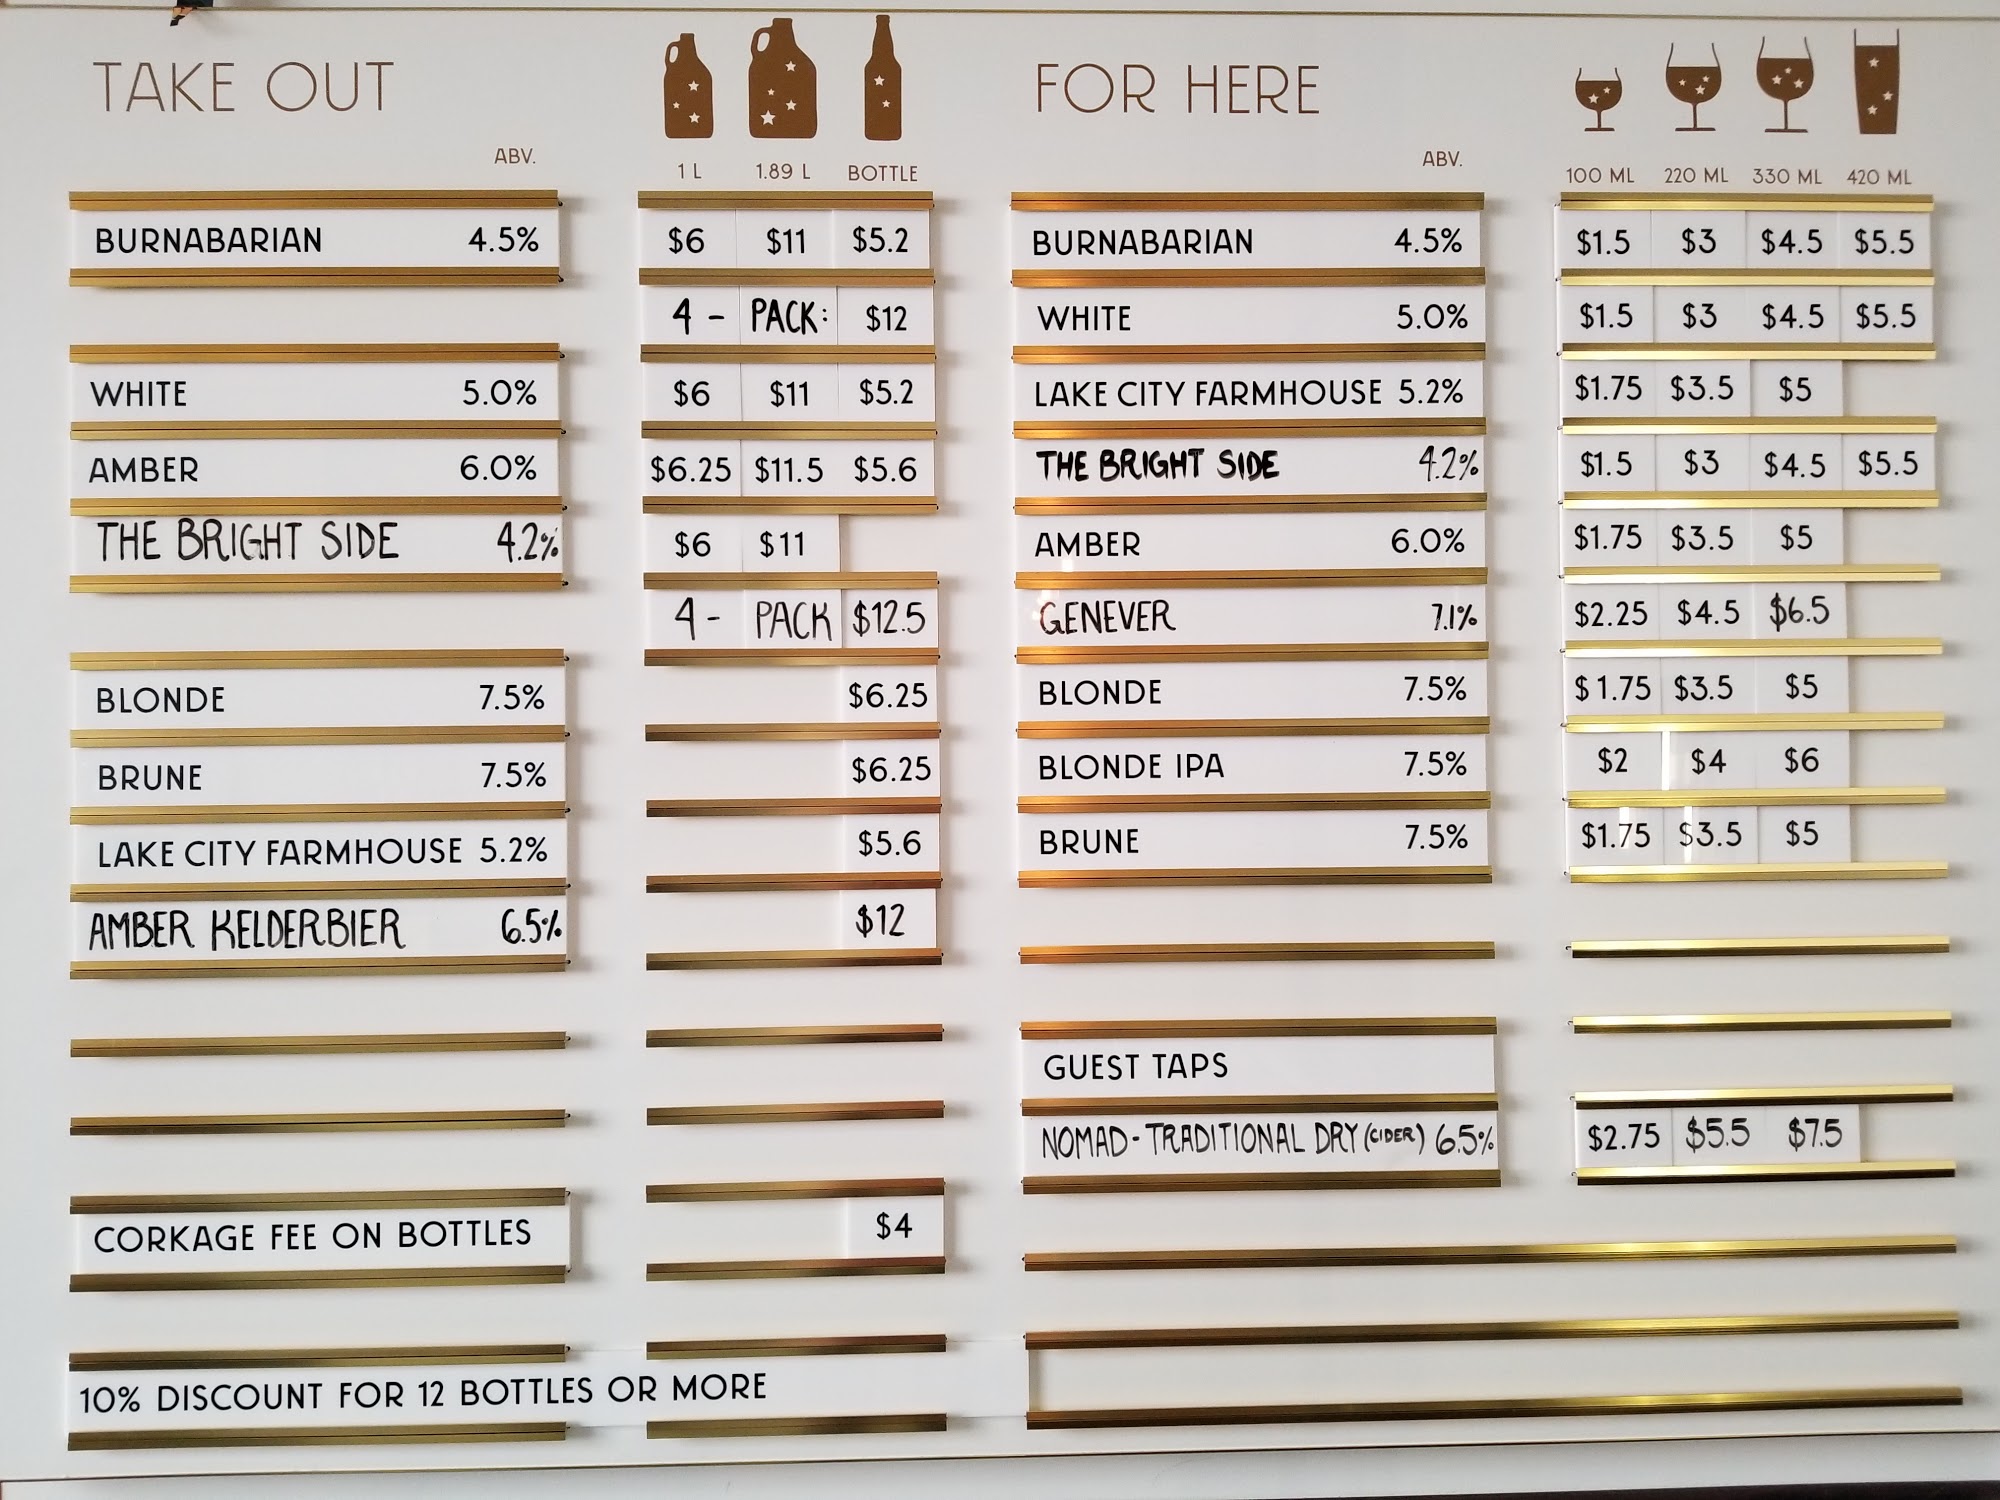 TAKE OUT
ABV.
1 L 1.89 L BOTTLE
BURNABARIAN 4.5% $6 $11 $5.2
4 - PACK: $12
WHITE 5.0% $6 $11 $5.2
AMBER 6.0% $6.25 $11.5 $5.6
THE BRIGHT SIDE 4.2% $6 $11
4 - PACK $12.5
BLONDE 7.5% $6.25
BRUNE 7.5% $6.25
LAKE CITY FARMHOUSE 5.2% $5.6
AMBER KELDERBIER 6.5% $12
CORKAGE FEE ON BOTTLES $4
10% DISCOUNT FOR 12 BOTTLES OR MORE
FOR HERE
ABV.
100 ML 220 ML 330 ML 420 ML
BURNABARIAN 4.5% $1.5 $3 $4.5 $5.5
WHITE 5.0% $1.5 $3 $4.5 $5.5
LAKE CITY FARMHOUSE 5.2% $1.75 $3.5 $5
THE BRIGHT SIDE 4.2% $1.5 $3 $4.5 $5.5
AMBER 6.0% $1.75 $3.5 $5
GENEVER 7.1% $2.25 $4.5 $6.5
BLONDE 7.5% $1.75 $3.5 $5
BLONDE IPA 7.5% $2 $4 $6
BRUNE 7.5% $1.75 $3.5 $5
GUEST TAPS
NOMAD - TRADITIONAL DRY (CIDER) 6.5% $2.75 $5.5 $7.5